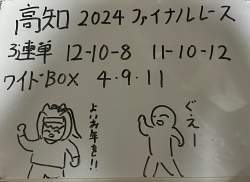 高知 2024 ファイナルレース
3連単 12-10-8 11-10-12
ワイドBOX 4・9・11
よいお年を!!
ぐえー